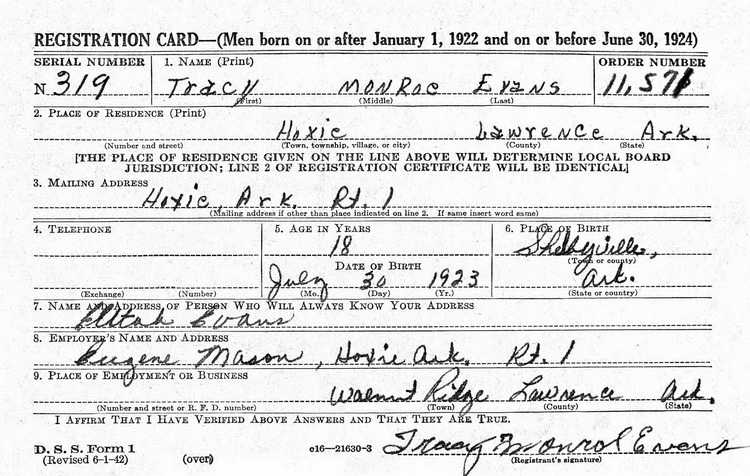 REGISTRATION CARD—(Men born on or after January 1, 1922 and on or before June 30, 1924)
SERIAL NUMBER 1. NAME (Print) ORDER NUMBER
N 319 Tracy Monroe Evans 11,571
(First) (Middle) (Last)
2. PLACE OF RESIDENCE (Print)
Hoxie Lawrence Ark.
(Number and street) (Town, township, village, or city) (County) (State)
[THE PLACE OF RESIDENCE GIVEN ON THE LINE ABOVE WILL DETERMINE LOCAL BOARD
JURISDICTION; LINE 2 OF REGISTRATION CERTIFICATE WILL BE IDENTICAL]
3. MAILING ADDRESS
Hoxie, Ark. Rt. 1
(Mailing address if other than place indicated on line 2. If same insert word same)
4. TELEPHONE 5. AGE IN YEARS 6. PLACE OF BIRTH
18 Shelbyville,
DATE OF BIRTH (Town or county)
July 30 1923 Ark.
(Exchange) (Number) (Mo.) (Day) (Yr.) (State or country)
7. NAME AND ADDRESS OF PERSON WHO WILL ALWAYS KNOW YOUR ADDRESS
Evans
8. EMPLOYER'S NAME AND ADDRESS
Eugene Mason, Hoxie Ark. Rt. 1
9. PLACE OF EMPLOYMENT OR BUSINESS
Walnut Ridge Lawrence Ark.
(Number and street or R. F. D. number) (Town) (County) (State)
I AFFIRM THAT I HAVE VERIFIED ABOVE ANSWERS AND THAT THEY ARE TRUE.
D. S. S. Form 1
(Revised 6-1-42) (over) c16—21630-3 Tracy Monroe Evans
(Registrant's signature)